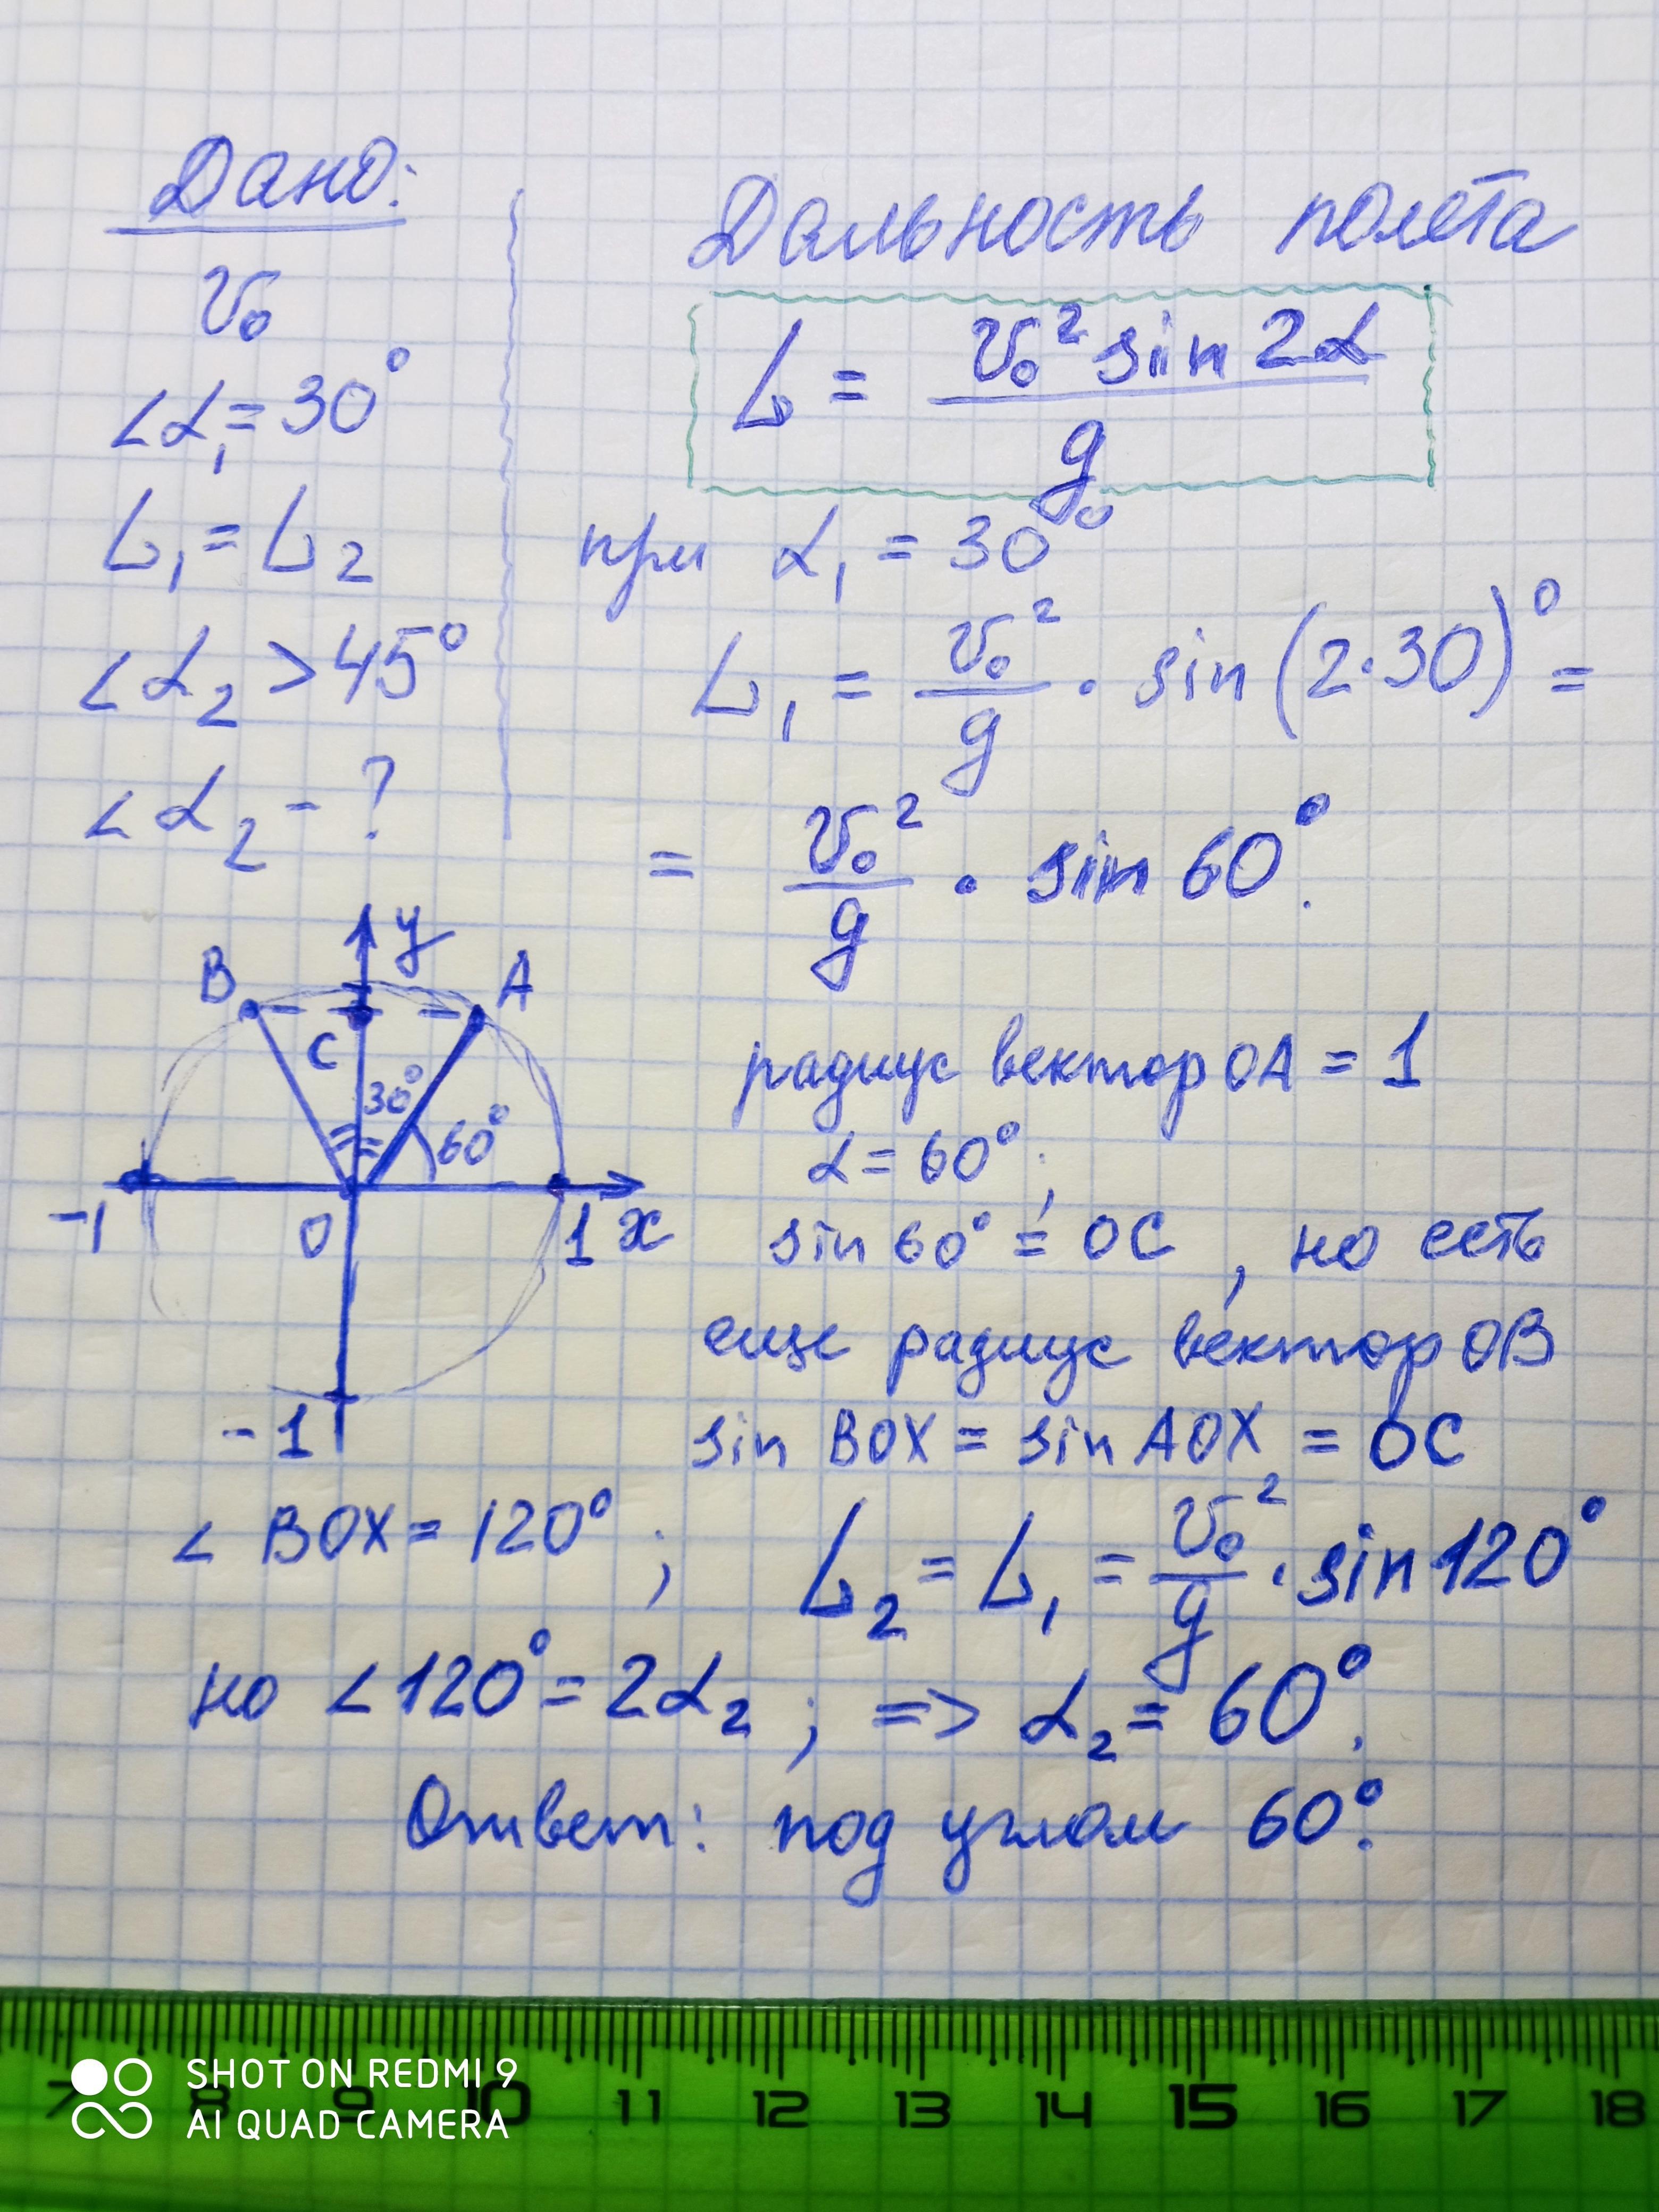 Дано:
v₀
∠α₁ = 30°
L₁ = L₂
∠α₂ > 45°
∠α₂ - ?
Дальность полёта
L = v₀² sin 2α / g
при α₁ = 30°
L₁ = v₀²/g · sin (2·30)° =
= v₀²/g · sin 60°.
y
B
A
C
30°
60°
-1
0
1
x
-1
радиус вектор OA = 1
α = 60°;
sin 60° = OC, но есть
еще радиус вектор OB
sin BOX = sin AOX = OC
∠ BOX = 120° ; L₂ = L₁ = v₀²/g · sin 120°
но ∠120° = 2α₂ ; => α₂ = 60°.
Ответ: под углом 60°.
7 8 9 10 11 12 13 14 15 16 17 18
SHOT ON REDMI 9
AI QUAD CAMERA